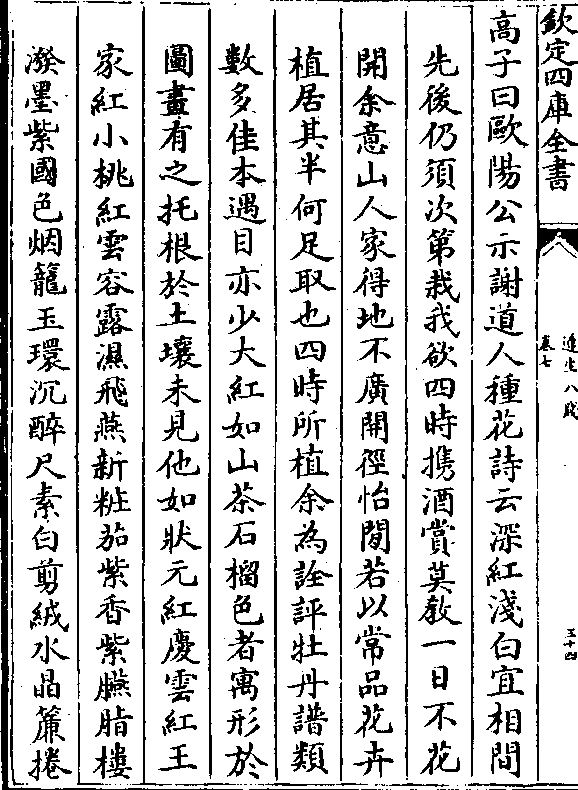 欽定四庫全書
遵生八牋
卷七
五十四
高子曰歐陽公示謝道人種花詩云深紅淺白宜相間
先後仍須次第栽我欲四時携酒賞莫教一日不花
開余意山人家得地不廣開徑怡閒若以常品花卉
植居其半何足取也四時所植余為詮評牡丹譜類
數多佳本遇目亦少大紅如山茶石榴色者寓形於
圖畫有之托根於土壤未見他如狀元紅慶雲紅王
家紅小桃紅雲容露濕飛燕新粧茄紫香紫臙脂樓
潑墨紫國色烟籠玉環沉醉尺素白剪絨水晶簾捲